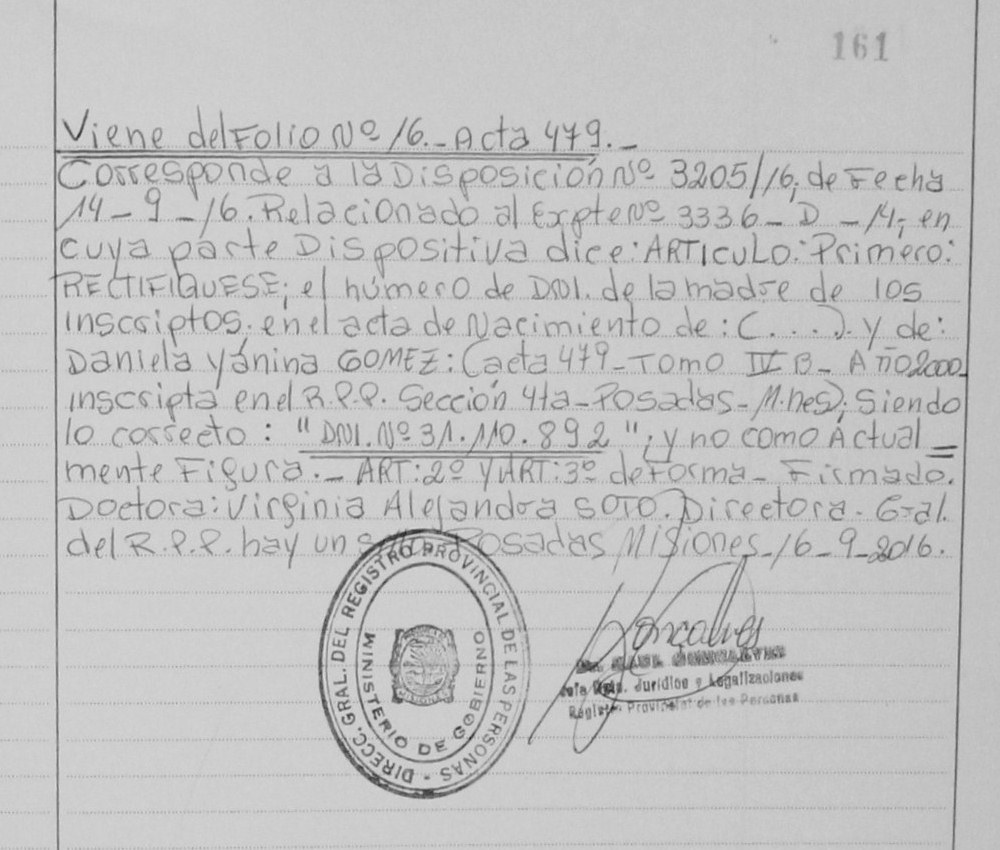 161
Viene del Folio Nº 16.- Acta 479.-
Corresponde a la Disposición Nº 3205/16; de Fecha
14-9-16. Relacionado al Expte Nº 3336-D-14; en
cuya parte Dispositiva dice: ARTICULO: Primero:
RECTIFIQUESE; el número de DNI. de la madre de los
inscriptos. en el acta de Nacimiento de: (....). y de:
Daniela Yánina GOMEZ: (acta 479-Tomo IV B- Año 2000-
inscripta en el R.P.P. Sección 4ta-Posadas-M.nes); Siendo
lo correcto: "DNI. Nº 31.110.892"; y no como Actual=
mente Figura.- ART: 2º Y ART: 3º de Forma- Firmado.
Doctora: Virginia Alejandra SOTO. Directora. Gral.
del R.P.P. hay un Posadas Misiones-16-9-2016.
DIRECC. GRAL. DEL REGISTRO PROVINCIAL DE LAS PERSONAS -
MINISTERIO DE GOBIERNO
Gonçalves
Jurídico y Legalizaciones
Registro Provincial de las Personas